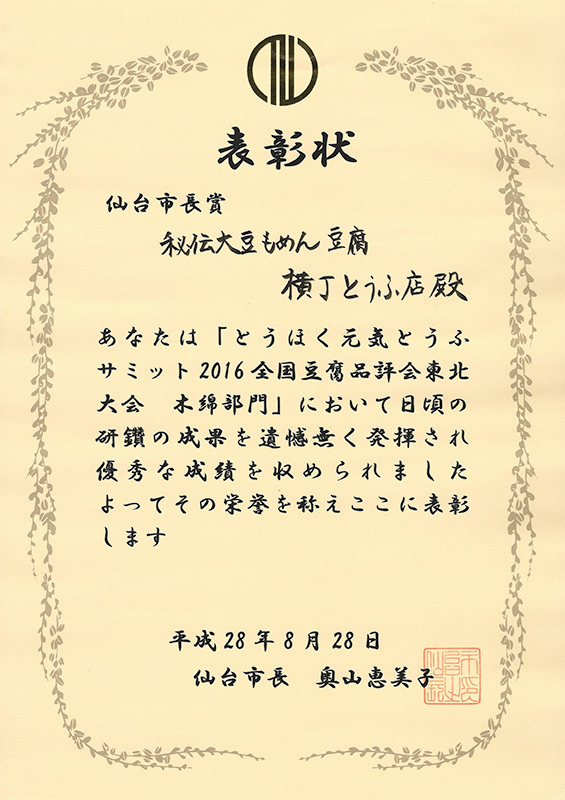 表彰状
仙台市長賞
秘伝大豆もめん豆腐
横丁とうふ店殿
あなたは「とうほく元気とうふ
サミット2016全国豆腐品評会東北
大会　木綿部門」において日頃の
研鑽の成果を遺憾無く発揮され
優秀な成績を収められました
よってその栄誉を称えここに表彰
します
平成28年8月28日
仙台市長　奥山恵美子